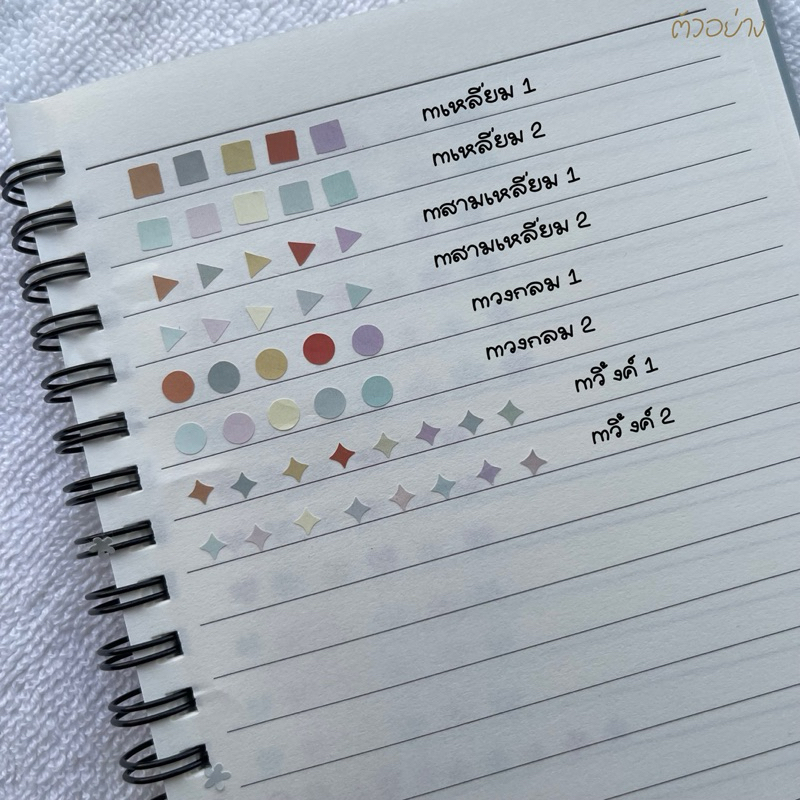 ตัวอย่าง
ทเหลี่ยม 1
ทเหลี่ยม 2
ทสามเหลี่ยม 1
ทสามเหลี่ยม 2
ทวงกลม 1
ทวงกลม 2
ทวิ้งค์ 1
ทวิ้งค์ 2